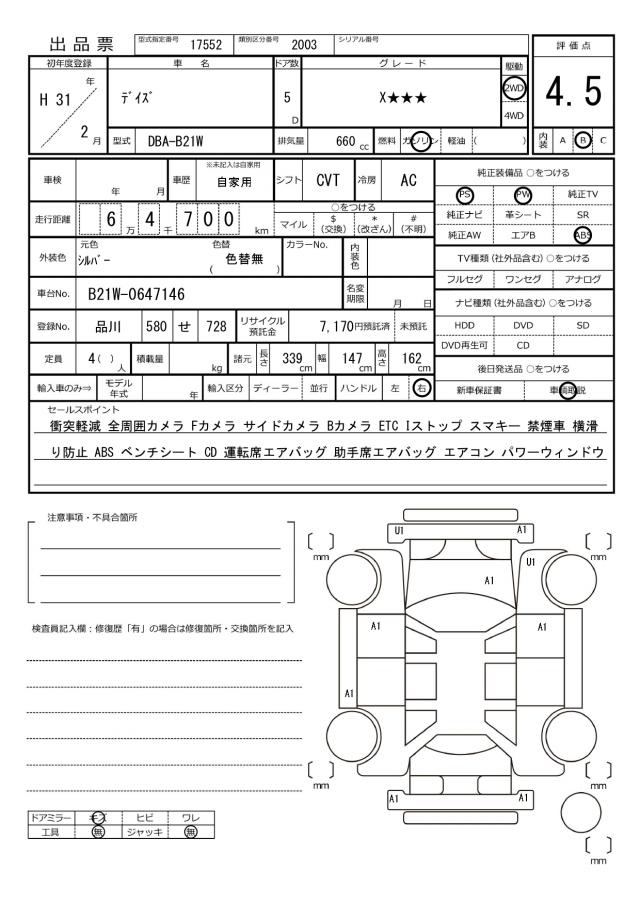 出品票 型式指定番号 17552 類別区分番号 2003 シリアル番号
評価点
4.5
初年度登録 車名 ドア数 グレード 駆動
H 31 年 2 月 ﾃﾞｲｽﾞ 5 D X★★★ 2WD 4WD
型式 DBA-B21W 排気量 660 cc 燃料 ガソリン 軽油 ( ) 内装 A B C
車検 年 月 車歴 ※未記入は自家用 自家用 シフト CVT 冷房 AC
純正装備品 ○をつける
PS PW 純正TV
純正ナビ 革シート SR
純正AW エアB ABS
走行距離 6 万 4 千 7 0 0 km
○をつける
マイル $ (交換) * (改ざん) # (不明)
外装色 元色 ｼﾙﾊﾞｰ 色替 ( 色替無 ) カラーNo. 内装色
TV種類 (社外品含む) ○をつける
フルセグ ワンセグ アナログ
車台No. B21W-0647146 名変期限 月 日
ナビ種類 (社外品含む) ○をつける
登録No. 品川 580 せ 728 リサイクル預託金 7,170円預託済 未預託
HDD DVD SD
DVD再生可 CD
定員 4( ) 人 積載量 kg 諸元 長さ 339 cm 幅 147 cm 高さ 162 cm
後日発送品 ○をつける
輸入車のみ⇒ モデル年式 年 輸入区分 ディーラー 並行 ハンドル 左 右
新車保証書 車輌取説
セールスポイント
衝突軽減 全周囲カメラ Fカメラ サイドカメラ Bカメラ ETC Iストップ スマキー 禁煙車 横滑
り防止 ABS ベンチシート CD 運転席エアバッグ 助手席エアバッグ エアコン パワーウィンドウ
注意事項・不具合箇所
検査員記入欄：修復歴「有」の場合は修復箇所・交換箇所を記入
U1 A1
mm mm
U1
A1
A1 A1
A1
mm mm
A1 A1
mm
ドアミラー キズ ヒビ ワレ
工具 無 ジャッキ 無